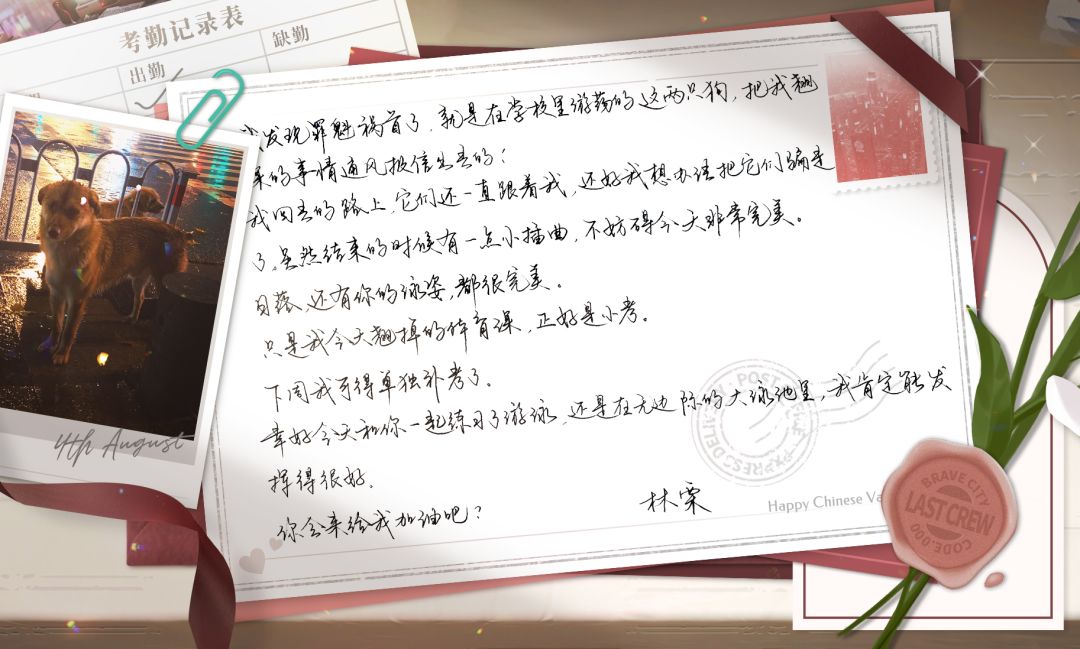 考勤记录表
出勤
缺勤
我发现罪魁祸首了，就是在学校里游荡的这两只狗，把我翘
来的事情通风报信出去的！
我回去的路上，它们还一直跟着我，还好我想办法把它们骗走
了，虽然结束的时候有一点小插曲，不妨碍今天非常完美。
日落、还有你的泳姿，都很完美。
只是我今天翘掉的体育课，正好是小考。
下周我可得单独补考了。
幸好今天和你一起练习了游泳，还是在无边际的大泳池里，我肯定能发
挥得很好。
你会来给我加油吧？
林栗
4th August
Happy Chinese Va
BRAVE CITY
LAST CREW
CODE:000